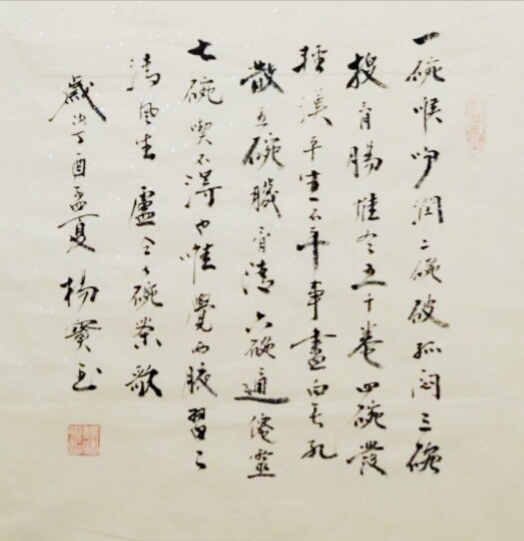 一碗喉吻潤二碗破孤悶三碗
搜腸惟五千卷四碗發
輕漢平生不平事盡向毛孔
散五碗肌骨清六碗通僊靈
七碗喫不得也唯覺兩腋習々
清風生 盧仝七碗茶歌
歲次丁酉孟夏 楊寶玉